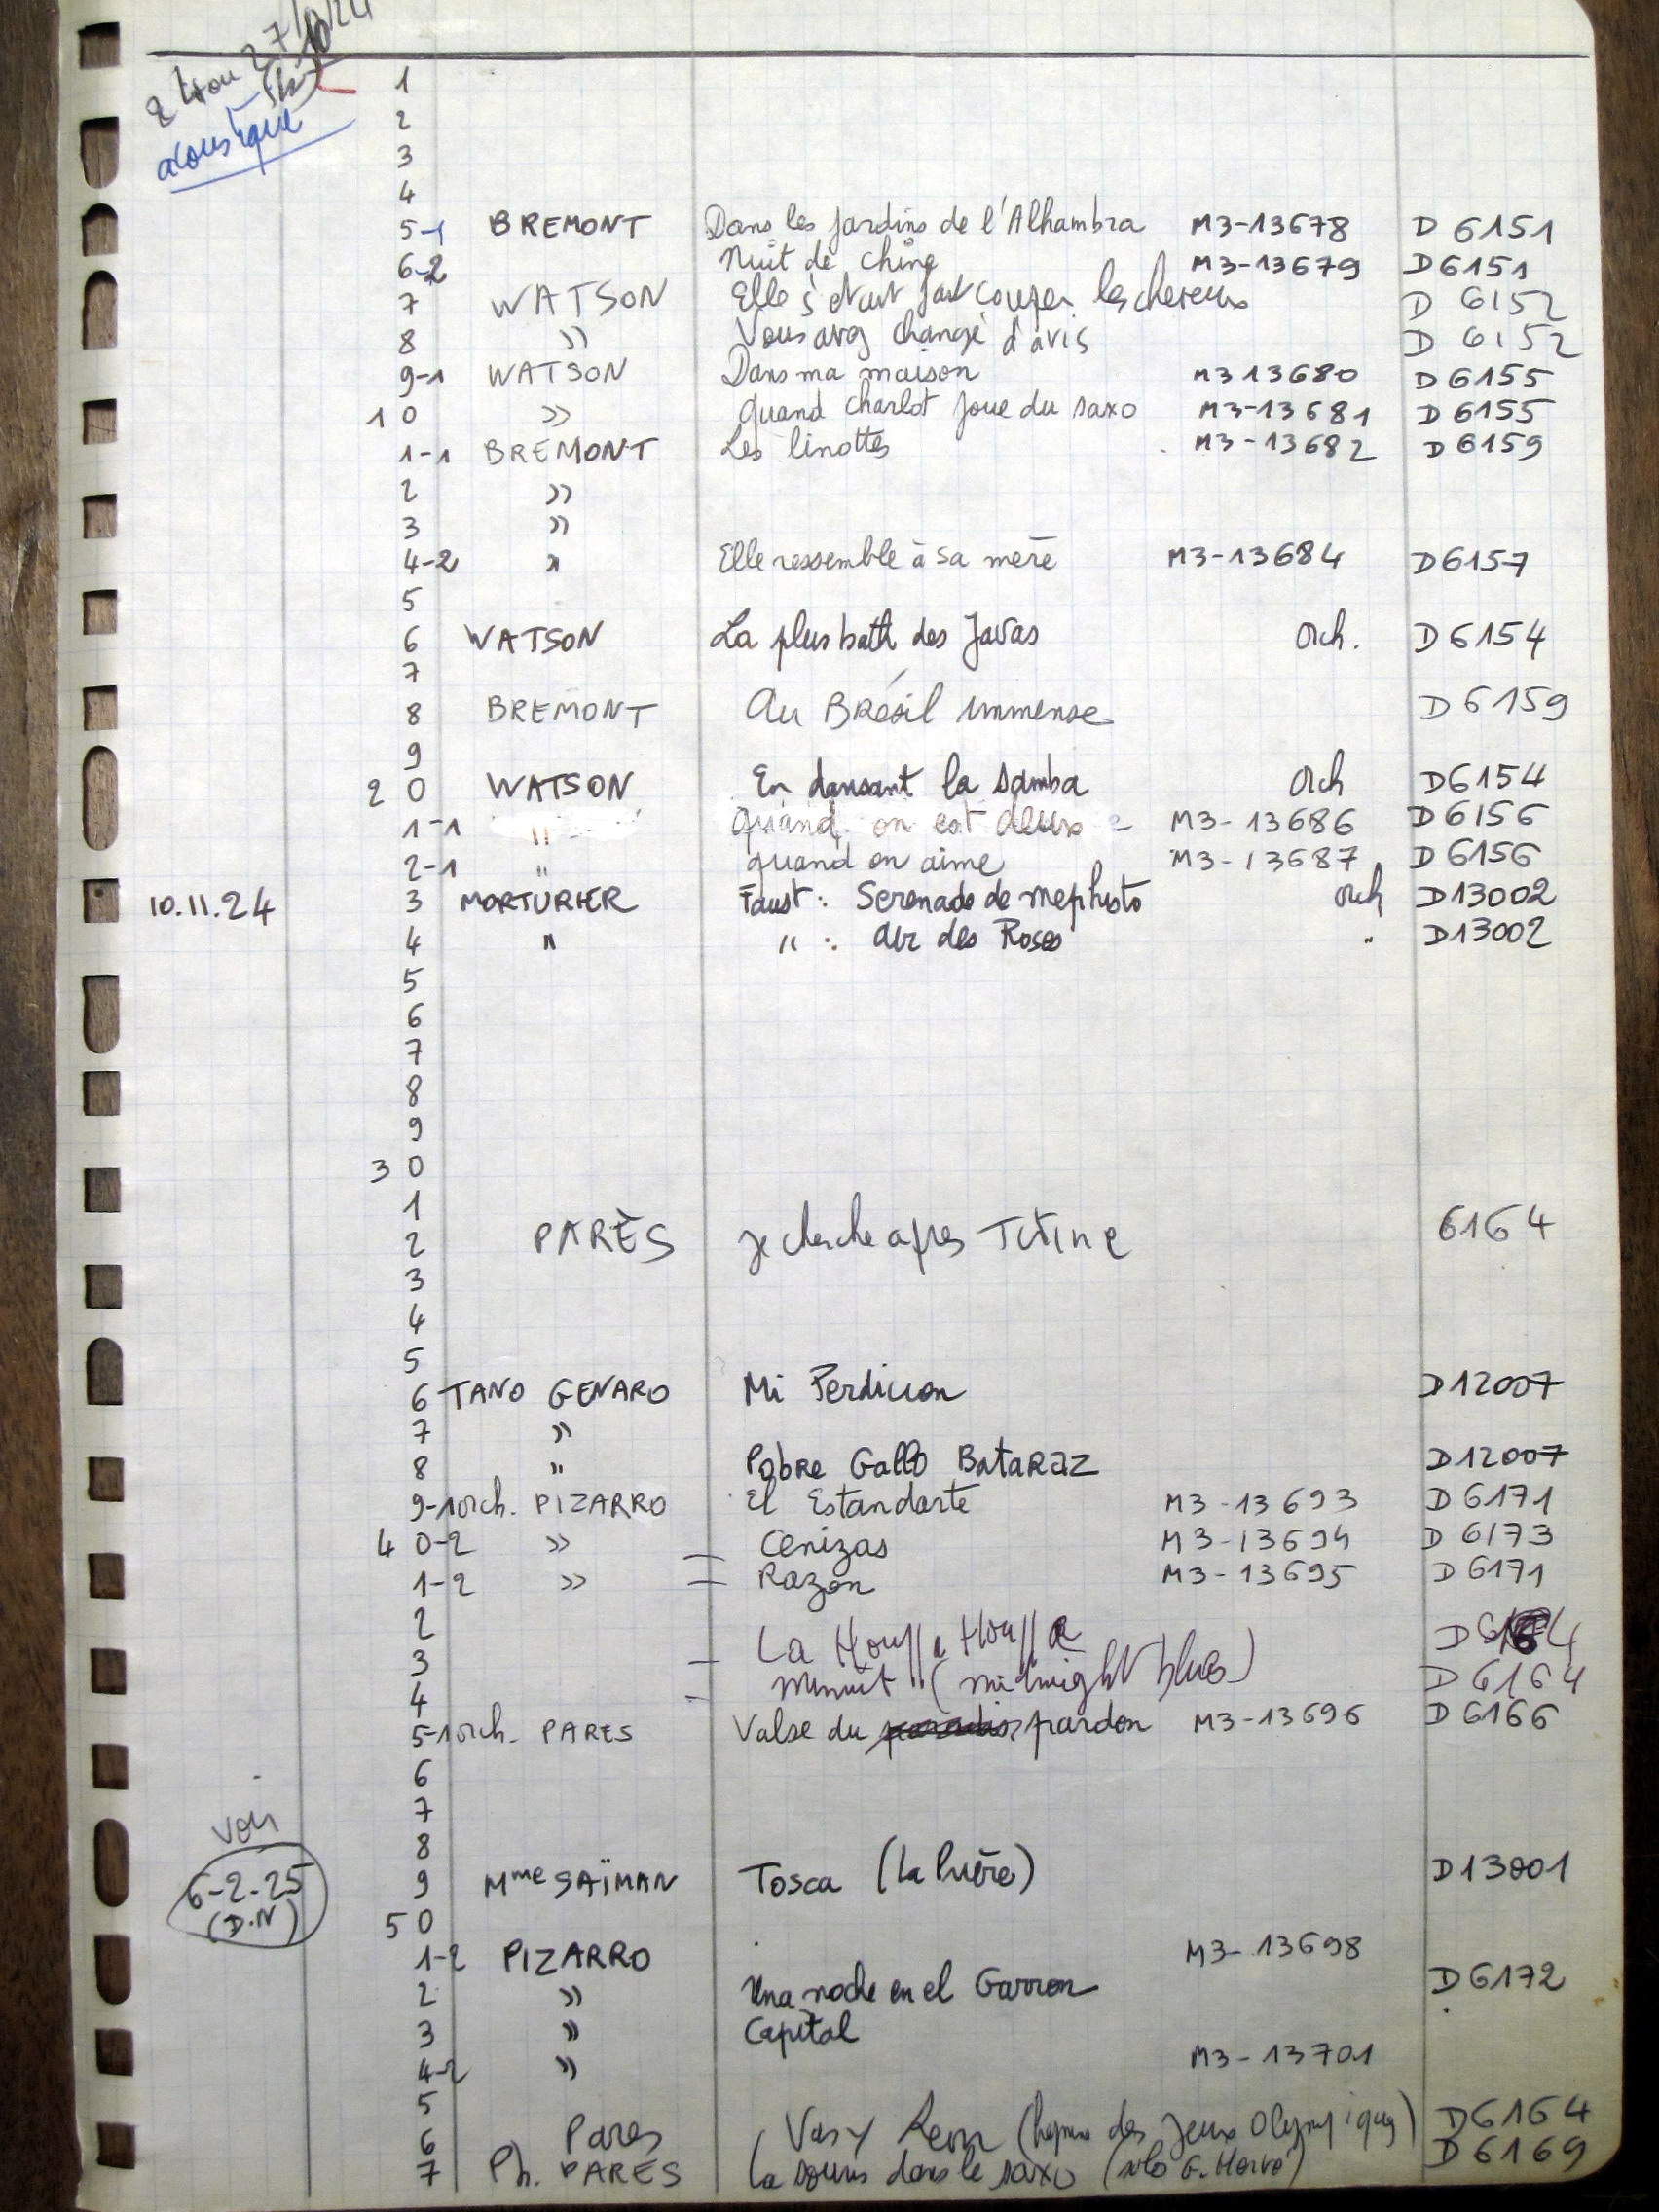 27/10/24
acoustique
1
2
3
4
5-1 BREMONT Dans les jardins de l'Alhambra M3-13678 D 6151
6-2 Nuit de chine M3-13679 D 6151
7 WATSON Elle s'etait fait couper les cheveux D 6152
8 » Vous avez changé d'avis D 6152
9-1 WATSON Dans ma maison M3 13680 D 6155
10 » quand charlot joue du saxo M3-13681 D 6155
1-1 BREMONT Les linottes M3-13682 D 6159
2 »
3 »
4-2 » Elle ressemble à sa mère M3-13684 D 6157
5
6 WATSON La plus bath des Javas Orch. D 6154
7
8 BREMONT Au Brésil immense D 6159
9
20 WATSON En dansant la samba Orch D 6154
1-1 " quand on est deux M3-13686 D 6156
2-1 " quand on aime M3-13687 D 6156
10.11.24 3 MORTURIER Faust : Serenade de mephisto orch D13002
4 " " : air des Roses " D13002
5
6
7
8
9
30
1
2 PARÈS je cherche apres Titine 6164
3
4
5
6 TANO GENARO Mi Perdicion D12007
7 »
8 " Pobre Gallo BataRaz D12007
9-1 orch. PIZARRO El Estandarte M3-13693 D 6171
40-2 » Cenizas M3-13694 D 6173
1-2 » Razon M3-13695 D 6171
2
3 La Houppa Houppa D 6164
4 Minuit (midnight blues) D 6164
5-1 orch. PARES Valse du pardon M3-13696 D 6166
6
7
8
voir
6-2-25
(D.N)
9 Mme SAÏMAN Tosca (La Prière) D13001
50
1-2 PIZARRO M3-13698
2 » Una noche en el Garron D 6172
3 » Capital
4-2 » M3-13701
5
6 Pares Vas-y (hymne des Jeux Olympiques) D6164
7 Ph. PARÈS La souris dans le saxo (solo G. Hervé) D 6169